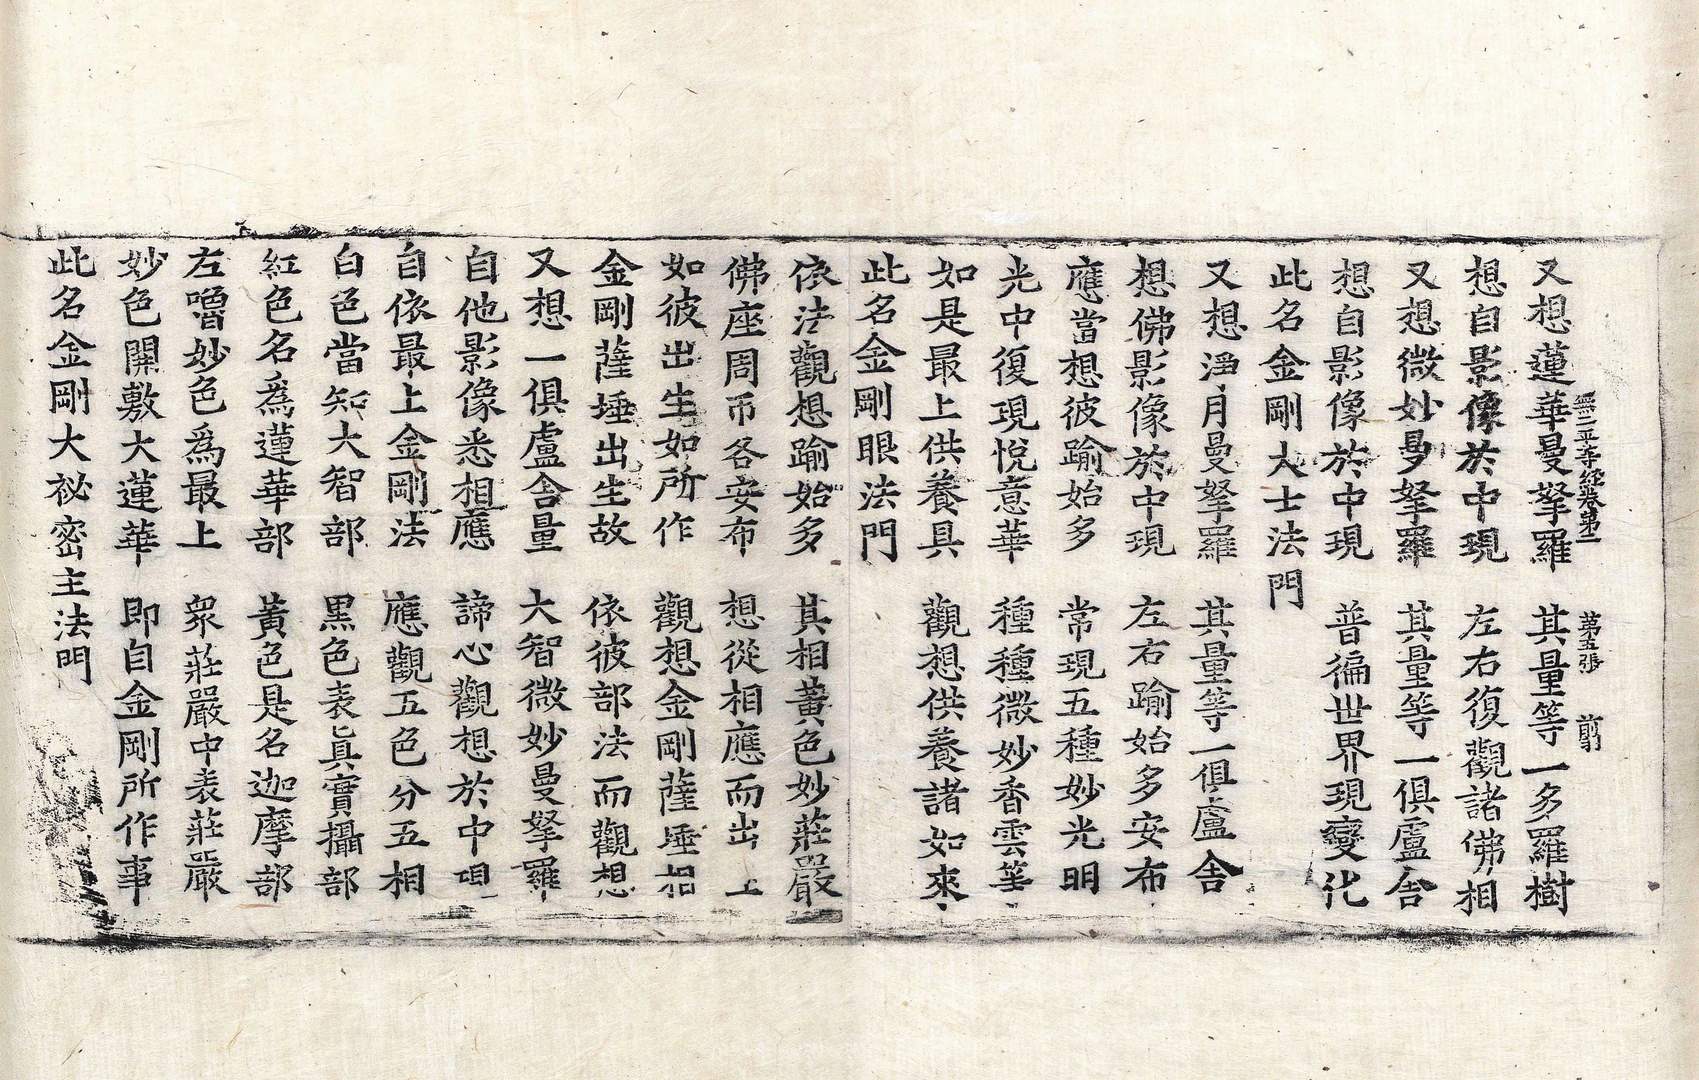 又想蓮華曼拏羅　其量等一多羅樹
無二平等經卷第二　第五張　前
想自影像於中現　左右復觀諸佛相
又想微妙曼拏羅　其量等一俱盧舍
想自影像於中現　普徧世界現變化
此名金剛大士法門
又想淨月曼拏羅　其量等一俱盧舍
想佛影像於中現　左右踰始多安布
應當想彼踰始多　常現五種妙光明
光中復現悅意華　種種微妙香雲等
如是最上供養具　觀想供養諸如來
此名金剛眼法門
依法觀想踰始多　其相黃色妙莊嚴
佛座周帀各安布　想從相應而出上
如彼出生如所作　觀想金剛薩埵相
金剛薩埵出生故　依彼部法而觀想
又想一俱盧舍量　大智微妙曼拏羅
自他影像悉相應　諦心觀想於中現
自依最上金剛法　應觀五色分五相
白色當知大智部　黑色表真實攝部
紅色名爲蓮華部　黃色是名迦摩部
左嚕妙色爲最上　衆莊嚴中表莊嚴
妙色開敷大蓮華　即自金剛所作事
此名金剛大祕密主法門